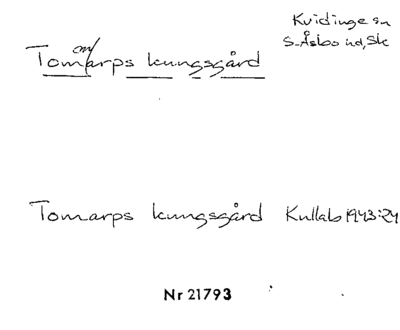 Kvidinge sn
S. Åsbo hd, Sk
m
Tommarps kungsgård
Tomarps kungsgård Kullabo 1943:24
Nr 21793